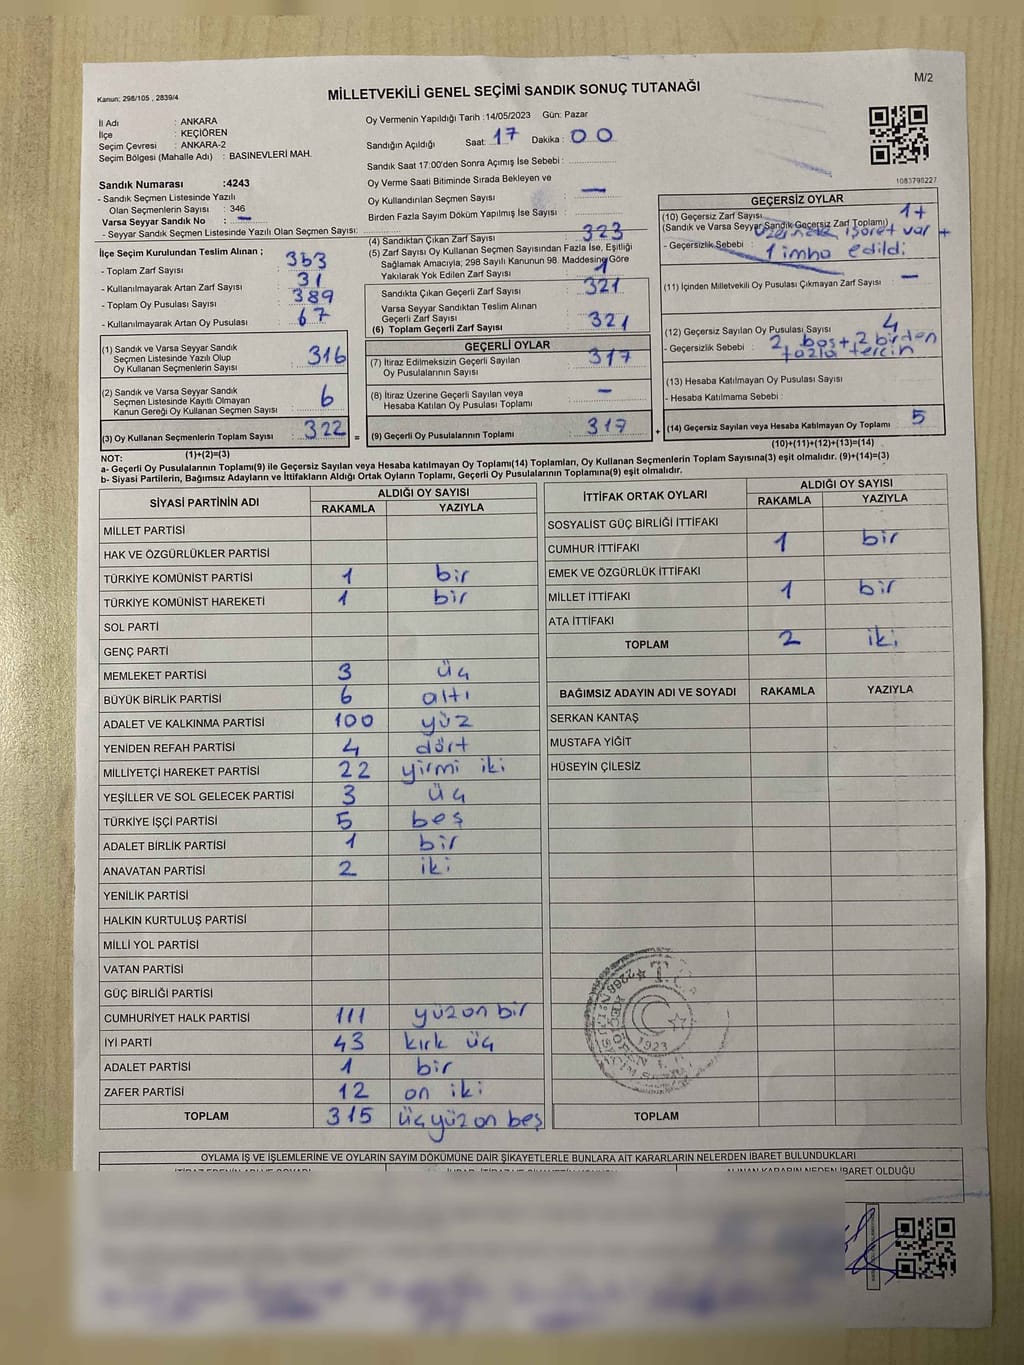 M/2
Kanun: 298/105 , 2839/4
MİLLETVEKİLİ GENEL SEÇİMİ SANDIK SONUÇ TUTANAĞI
İl Adı : ANKARA
İlçe : KEÇİÖREN
Seçim Çevresi : ANKARA-2
Seçim Bölgesi (Mahalle Adı) : BASINEVLERİ MAH.
Sandık Numarası :4243
- Sandık Seçmen Listesinde Yazılı
Olan Seçmenlerin Sayısı : 346
Varsa Seyyar Sandık No : —
- Seyyar Sandık Seçmen Listesinde Yazılı Olan Seçmen Sayısı:
İlçe Seçim Kurulundan Teslim Alınan ;
- Toplam Zarf Sayısı 353
- Kullanılmayarak Artan Zarf Sayısı 31
- Toplam Oy Pusulası Sayısı 389
- Kullanılmayarak Artan Oy Pusulası 67
(1) Sandık ve Varsa Seyyar Sandık
Seçmen Listesinde Yazılı Olup
Oy Kullanan Seçmenlerin Sayısı 316
(2) Sandık ve Varsa Seyyar Sandık
Seçmen Listesinde Kayıtlı Olmayan
Kanun Gereği Oy Kullanan Seçmen Sayısı 6
(3) Oy Kullanan Seçmenlerin Toplam Sayısı 322
(1)+(2)=(3)
Oy Vermenin Yapıldığı Tarih :14/05/2023 Gün: Pazar
Sandığın Açıldığı Saat: 17 Dakika : 00
Sandık Saat 17:00'den Sonra Açımış İse Sebebi :
Oy Verme Saati Bitiminde Sırada Bekleyen ve
Oy Kullandırılan Seçmen Sayısı : —
Birden Fazla Sayım Döküm Yapılmış İse Sayısı :
(4) Sandıktan Çıkan Zarf Sayısı 323
(5) Zarf Sayısı Oy Kullanan Seçmen Sayısından Fazla İse, Eşitliği
Sağlamak Amacıyla; 298 Sayılı Kanunun 98. Maddesine Göre
Yakılarak Yok Edilen Zarf Sayısı 1
Sandıkta Çıkan Geçerli Zarf Sayısı 321
Varsa Seyyar Sandıktan Teslim Alınan
Geçerli Zarf Sayısı
(6) Toplam Geçerli Zarf Sayısı 321
GEÇERLİ OYLAR
(7) İtiraz Edilmeksizin Geçerli Sayılan
Oy Pusulasının Sayısı 317
(8) İtiraz Üzerine Geçerli Sayılan veya
Hesaba Katılan Oy Pusulası Toplamı —
= (9) Geçerli Oy Pusulalarının Toplamı 317
1083798227
GEÇERSİZ OYLAR
(10) Geçersiz Zarf Sayısı 1+
(Sandık ve Varsa Seyyar Sandık Geçersiz Zarf Toplamı)
- Geçersizlik Sebebi : üzerinde işaret var +
1 imha edildi
(11) İçinden Milletvekili Oy Pusulası Çıkmayan Zarf Sayısı —
(12) Geçersiz Sayılan Oy Pusulası Sayısı 4
- Geçersizlik Sebebi : 2 boş + 2 birden
fazla tercih
(13) Hesaba Katılmayan Oy Pusulası Sayısı
- Hesaba Katılmama Sebebi :
+ (14) Geçersiz Sayılan veya Hesaba Katılmayan Oy Toplamı 5
(10)+(11)+(12)+(13)=(14)
NOT:
a- Geçerli Oy Pusulalarının Toplamı(9) ile Geçersiz Sayılan veya Hesaba katılmayan Oy Toplamı(14) Toplamları, Oy Kullanan Seçmenlerin Toplam Sayısına(3) eşit olmalıdır. (9)+(14)=(3)
b- Siyasi Partilerin, Bağımsız Adayların ve İttifakların Aldığı Ortak Oyların Toplamı, Geçerli Oy Pusulalarının Toplamına(9) eşit olmalıdır.
SİYASİ PARTİNİN ADI ALDIĞI OY SAYISI
RAKAMLA YAZIYLA
MİLLET PARTİSİ
HAK VE ÖZGÜRLÜKLER PARTİSİ
TÜRKİYE KOMÜNİST PARTİSİ 1 bir
TÜRKİYE KOMÜNİST HAREKETİ 1 bir
SOL PARTİ
GENÇ PARTİ
MEMLEKET PARTİSİ 3 üç
BÜYÜK BİRLİK PARTİSİ 6 altı
ADALET VE KALKINMA PARTİSİ 100 yüz
YENİDEN REFAH PARTİSİ 4 dört
MİLLİYETÇİ HAREKET PARTİSİ 22 yirmi iki
YEŞİLLER VE SOL GELECEK PARTİSİ 3 üç
TÜRKİYE İŞÇİ PARTİSİ 5 beş
ADALET BİRLİK PARTİSİ 1 bir
ANAVATAN PARTİSİ 2 iki
YENİLİK PARTİSİ
HALKIN KURTULUŞ PARTİSİ
MİLLİ YOL PARTİSİ
VATAN PARTİSİ
GÜÇ BİRLİĞİ PARTİSİ
CUMHURİYET HALK PARTİSİ 111 yüz on bir
İYİ PARTİ 43 kırk üç
ADALET PARTİSİ 1 bir
ZAFER PARTİSİ 12 on iki
TOPLAM 315 üçyüz on beş
İTTİFAK ORTAK OYLARI ALDIĞI OY SAYISI
RAKAMLA YAZIYLA
SOSYALİST GÜÇ BİRLİĞİ İTTİFAKI
CUMHUR İTTİFAKI 1 bir
EMEK VE ÖZGÜRLÜK İTTİFAKI
MİLLET İTTİFAKI 1 bir
ATA İTTİFAKI
TOPLAM 2 iki
BAĞIMSIZ ADAYIN ADI VE SOYADI RAKAMLA YAZIYLA
SERKAN KANTAŞ
MUSTAFA YİĞİT
HÜSEYİN ÇİLESİZ
T.C.
KEÇİÖREN
1923
TOPLAM
OYLAMA İŞ VE İŞLEMLERİNE VE OYLARIN SAYIM DÖKÜMÜNE DAİR ŞİKAYETLERLE BUNLARA AİT KARARLARIN NELERDEN İBARET BULUNDUKLARI
ALINAN KARARIN NEDEN İBARET OLDUĞU